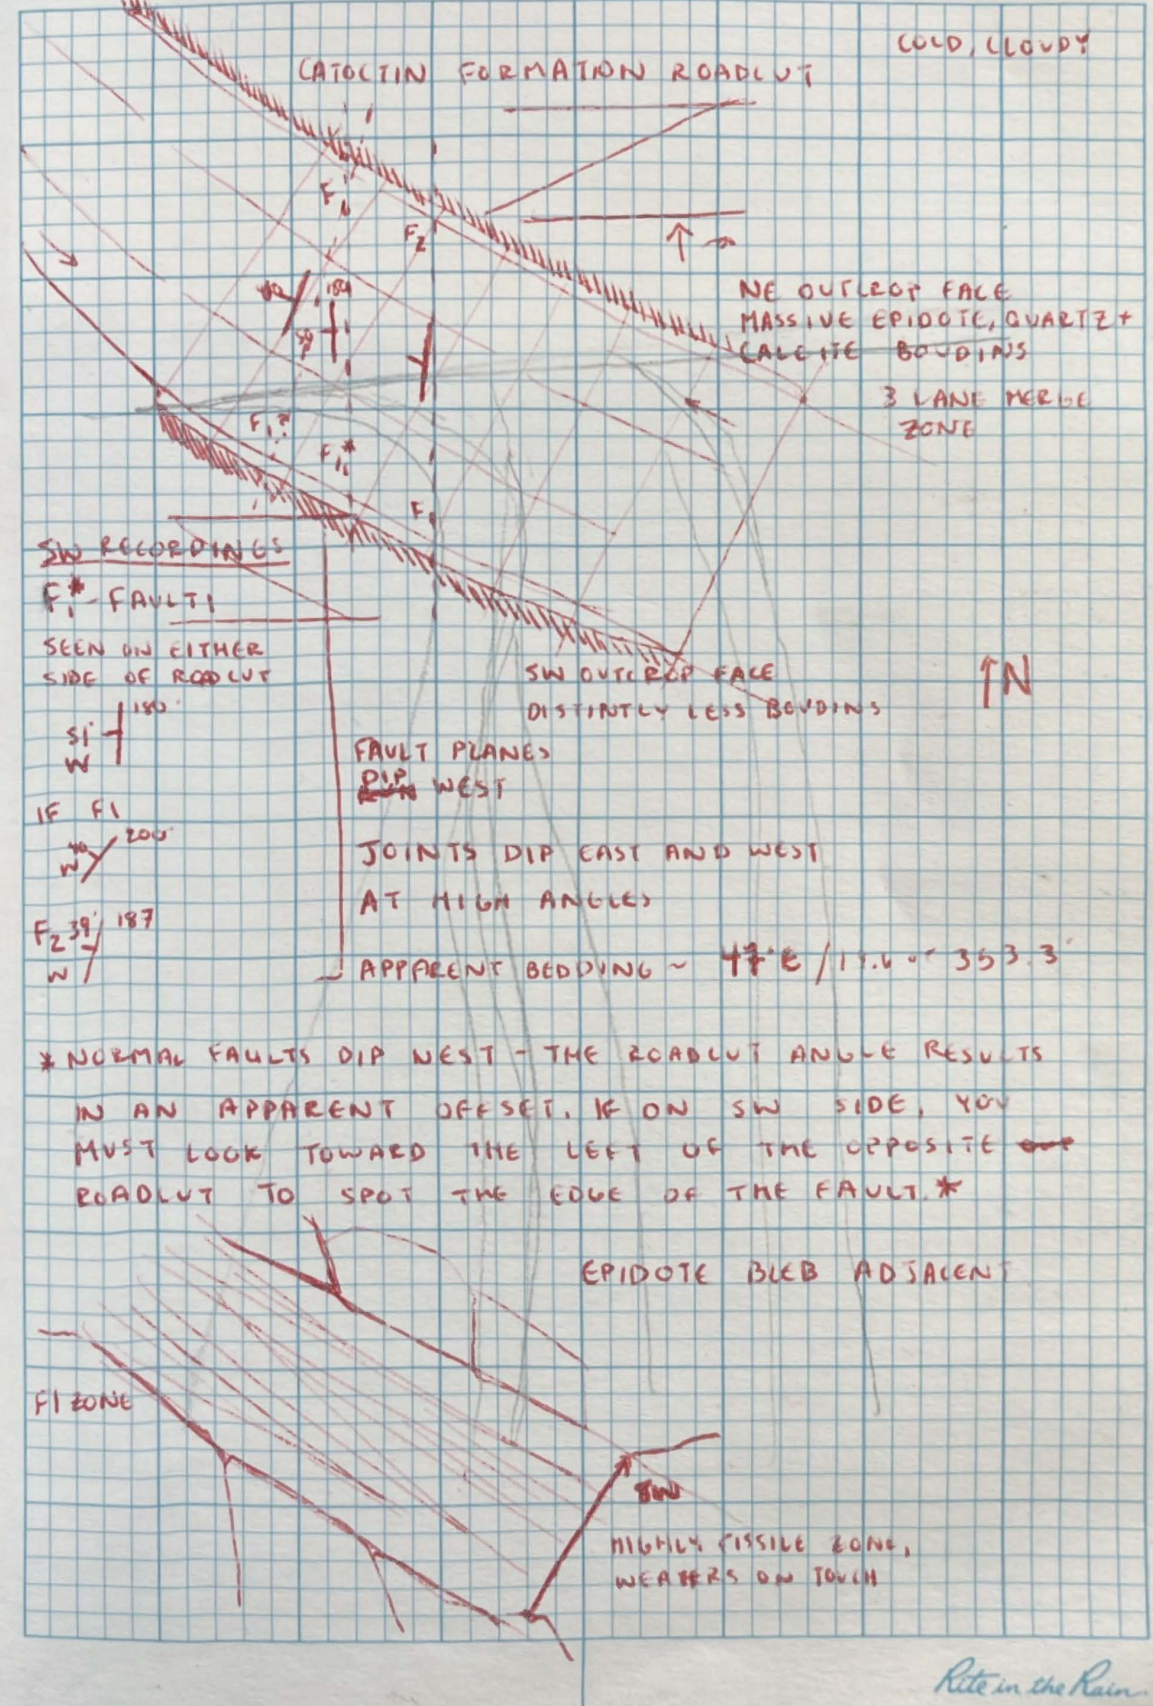 COLD, CLOUDY
CATOCTIN FORMATION ROADCUT
F₁
F₂
180
NE OUTCROP FACE
MASSIVE EPIDOTE, QUARTZ +
CALCITE BOUDINS
3 LANE MERGE
ZONE
F₁?
F₁*
F₂
SW RECORDINGS
F₁* - FAULT 1
SEEN ON EITHER
SIDE OF ROADCUT
180
51
W
IF F1
200
W
F₂ 39 187
W
N
SW OUTCROP FACE
DISTINTLY LESS BOUDINS
FAULT PLANES
DIP WEST
JOINTS DIP EAST AND WEST
AT HIGH ANGLES
APPARENT BEDDING ~ 47°E / 353.3
* NORMAL FAULTS DIP WEST - THE ROADCUT ANGLE RESULTS
IN AN APPARENT OFFSET. IF ON SW SIDE, YOU
MUST LOOK TOWARD THE LEFT OF THE OPPOSITE
ROADCUT TO SPOT THE EDGE OF THE FAULT. *
EPIDOTE BLEB ADJACENT
F1 ZONE
8W
HIGHLY FISSILE ZONE,
WEATERS ON TOUCH
Rite in the Rain